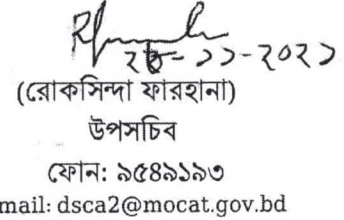 -১১-২০২১
(রোকসিন্দা ফারহানা)
উপসচিব
ফোন: ৯৫৪৯১৯৩
mail: dsca2@mocat.gov.bd